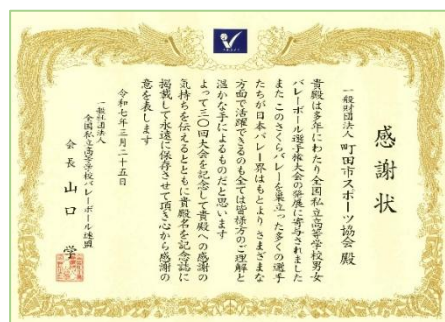 感謝状
一般財団法人 町田市スポーツ協会 殿
貴殿は多年にわたり全国私立高等学校男女
バレーボール選手権大会の発展に寄与されました
また このさくらバレーを巣立った多くの選手
たちが日本バレー界はもとより さまざまな
方面で活躍できるのも全ては皆様方のご理解と
温かな手によるものだと思います
よって三〇回大会を記念して貴殿への感謝の
気持ちを伝えるとともに貴殿名を記念誌に
掲載して永遠に保存させて頂き心から感謝の
意を表します
令和七年三月二十五日
一般社団法人
全国私立高等学校バレーボール連盟
会長 山口 学